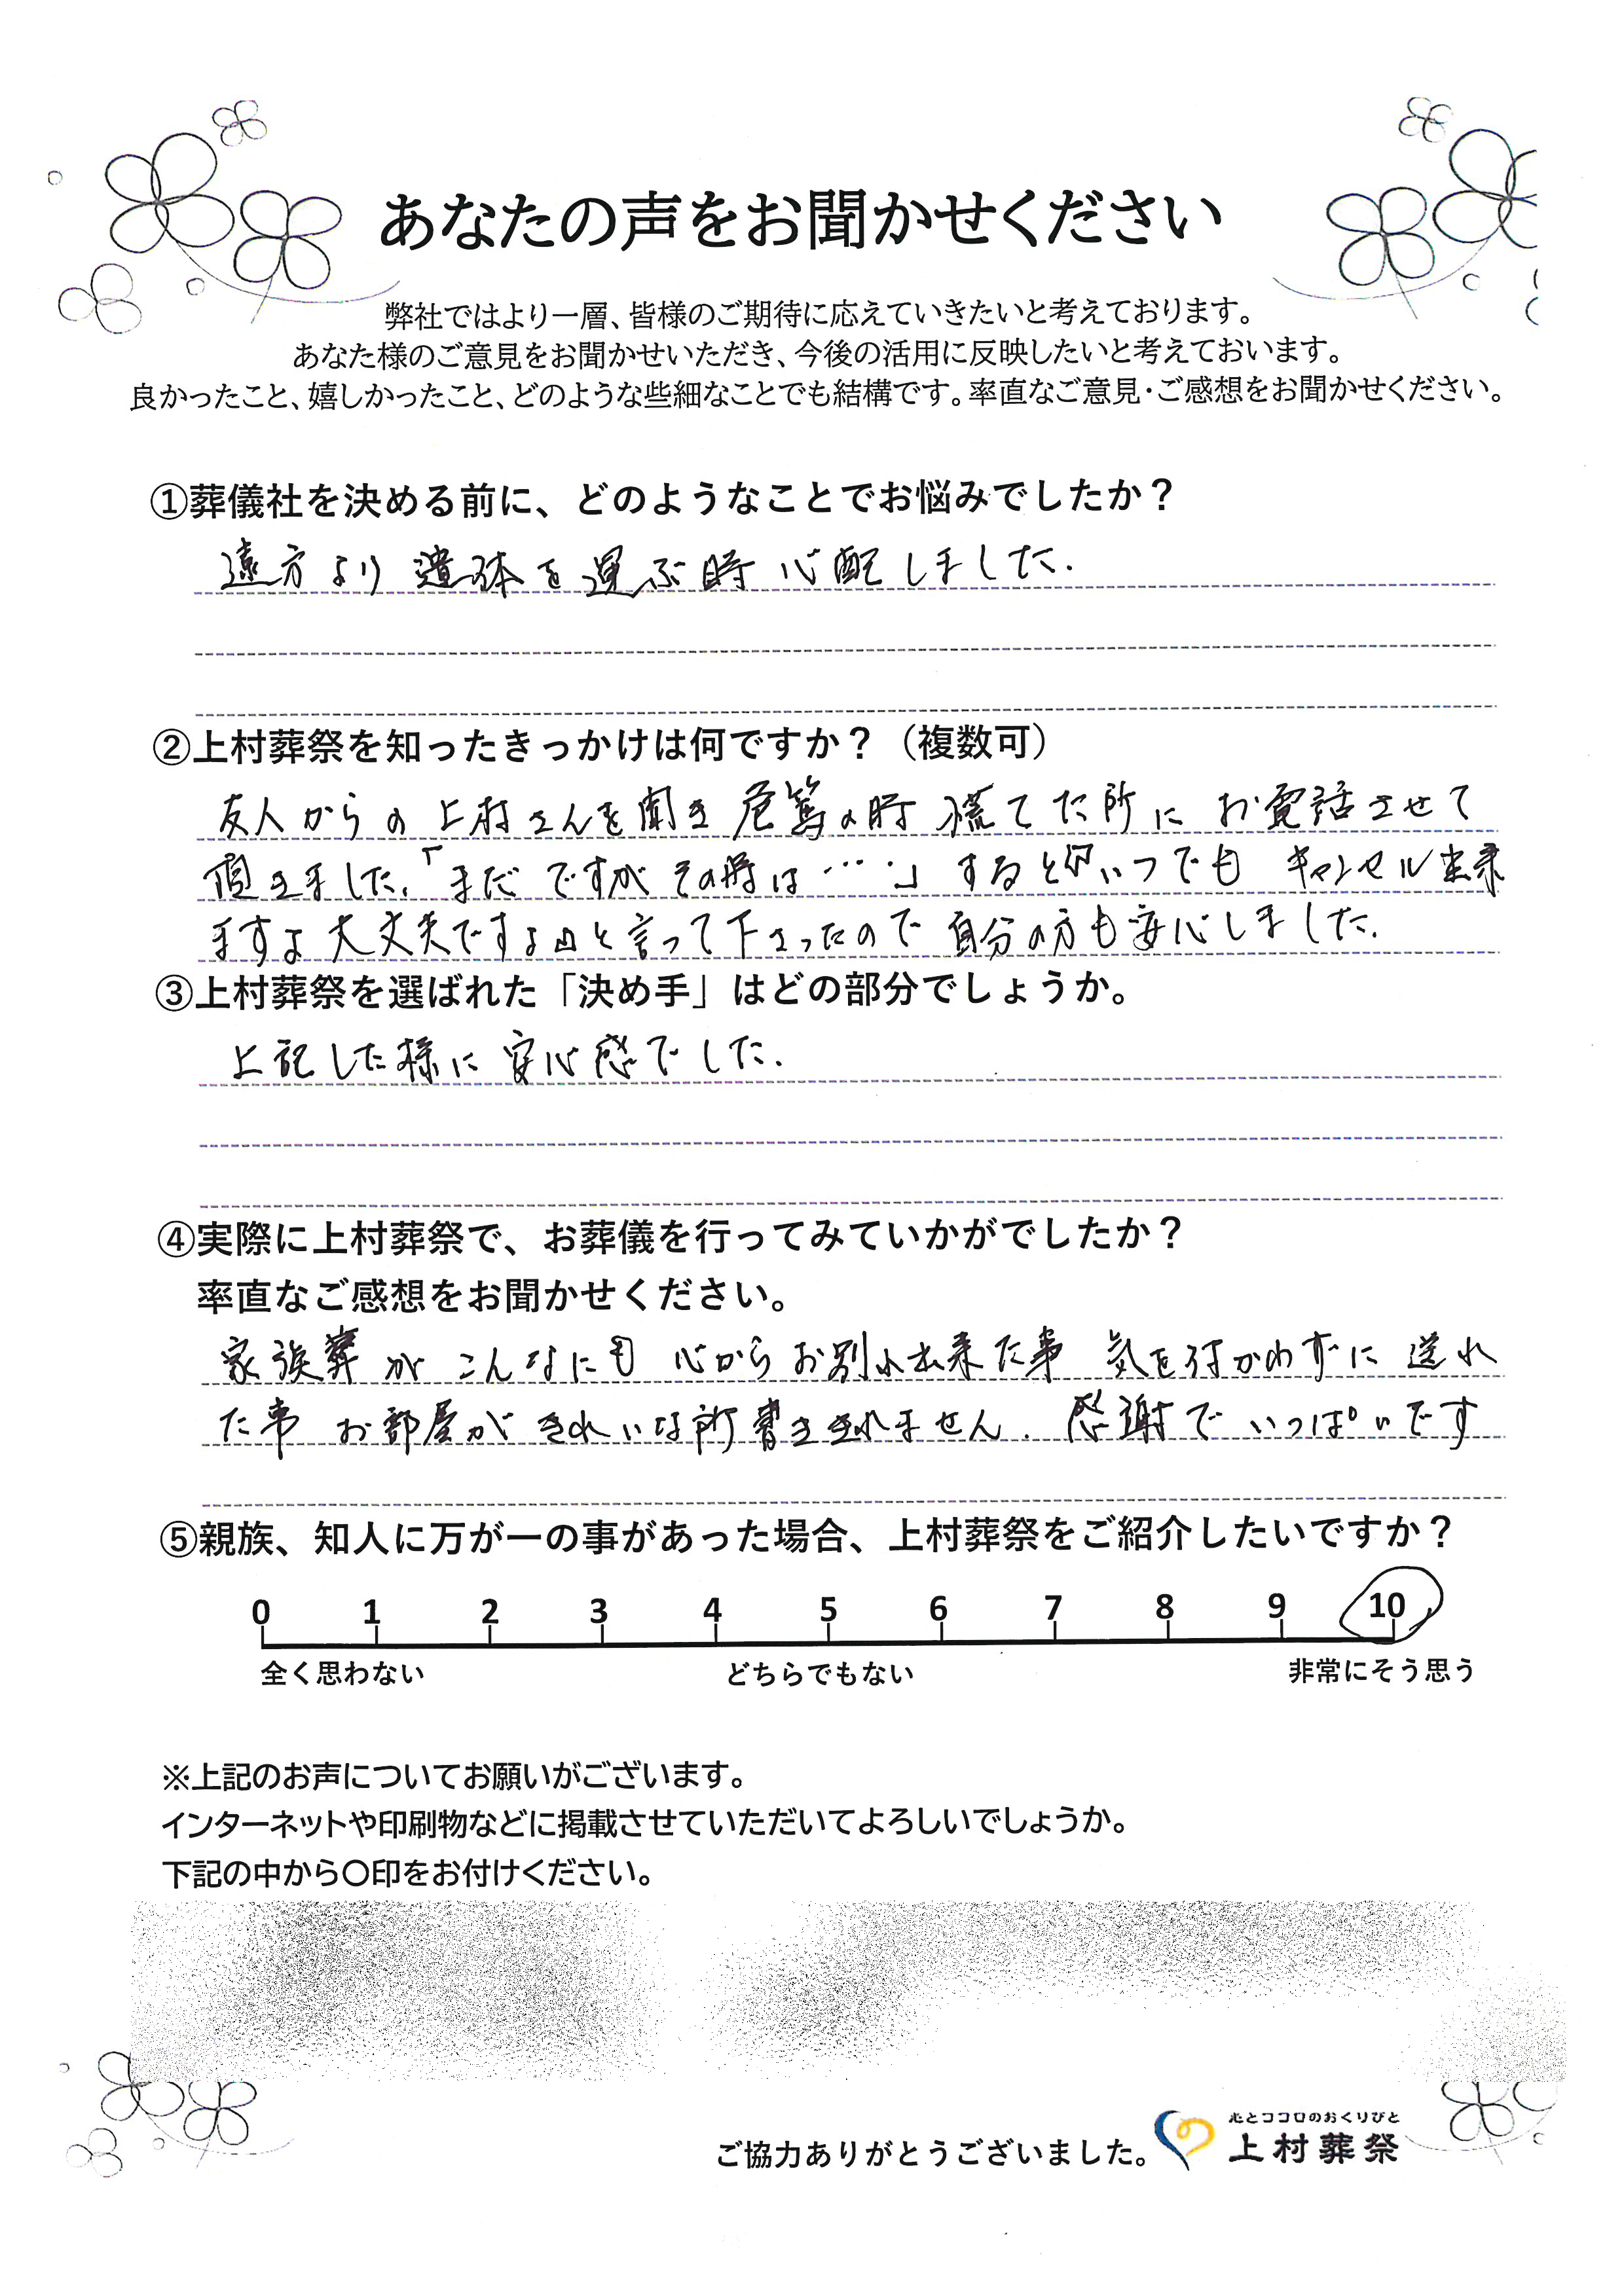 あなたの声をお聞かせください
弊社ではより一層、皆様のご期待に応えていきたいと考えております。
あなた様のご意見をお聞かせいただき、今後の活用に反映したいと考えておいます。
良かったこと、嬉しかったこと、どのような些細なことでも結構です。率直なご意見・ご感想をお聞かせください。
①葬儀社を決める前に、どのようなことでお悩みでしたか？
遠方より遺体を運ぶ時心配しました.
②上村葬祭を知ったきっかけは何ですか？（複数可）
友人からの上村さんを聞き危篤の時慌てた所にお電話させて
頂きました、「まだですがその時は……」すると『いつでもキャンセル出来
ますよ大丈夫ですよ』と言って下さったので自分の方も安心しました.
③上村葬祭を選ばれた「決め手」はどの部分でしょうか。
上記した様に安心感でした.
④実際に上村葬祭で、お葬儀を行ってみていかがでしたか？
率直なご感想をお聞かせください。
家族葬がこんなにも心からお別れ出来た事気を付かわずに送れ
た事お部屋がきれいな所書ききれません.感謝でいっぱいです
⑤親族、知人に万が一の事があった場合、上村葬祭をご紹介したいですか？
0 1 2 3 4 5 6 7 8 9 10
全く思わない どちらでもない 非常にそう思う
※上記のお声についてお願いがございます。
インターネットや印刷物などに掲載させていただいてよろしいでしょうか。
下記の中から〇印をお付けください。
心とココロのおくりびと
ご協力ありがとうございました。上村葬祭